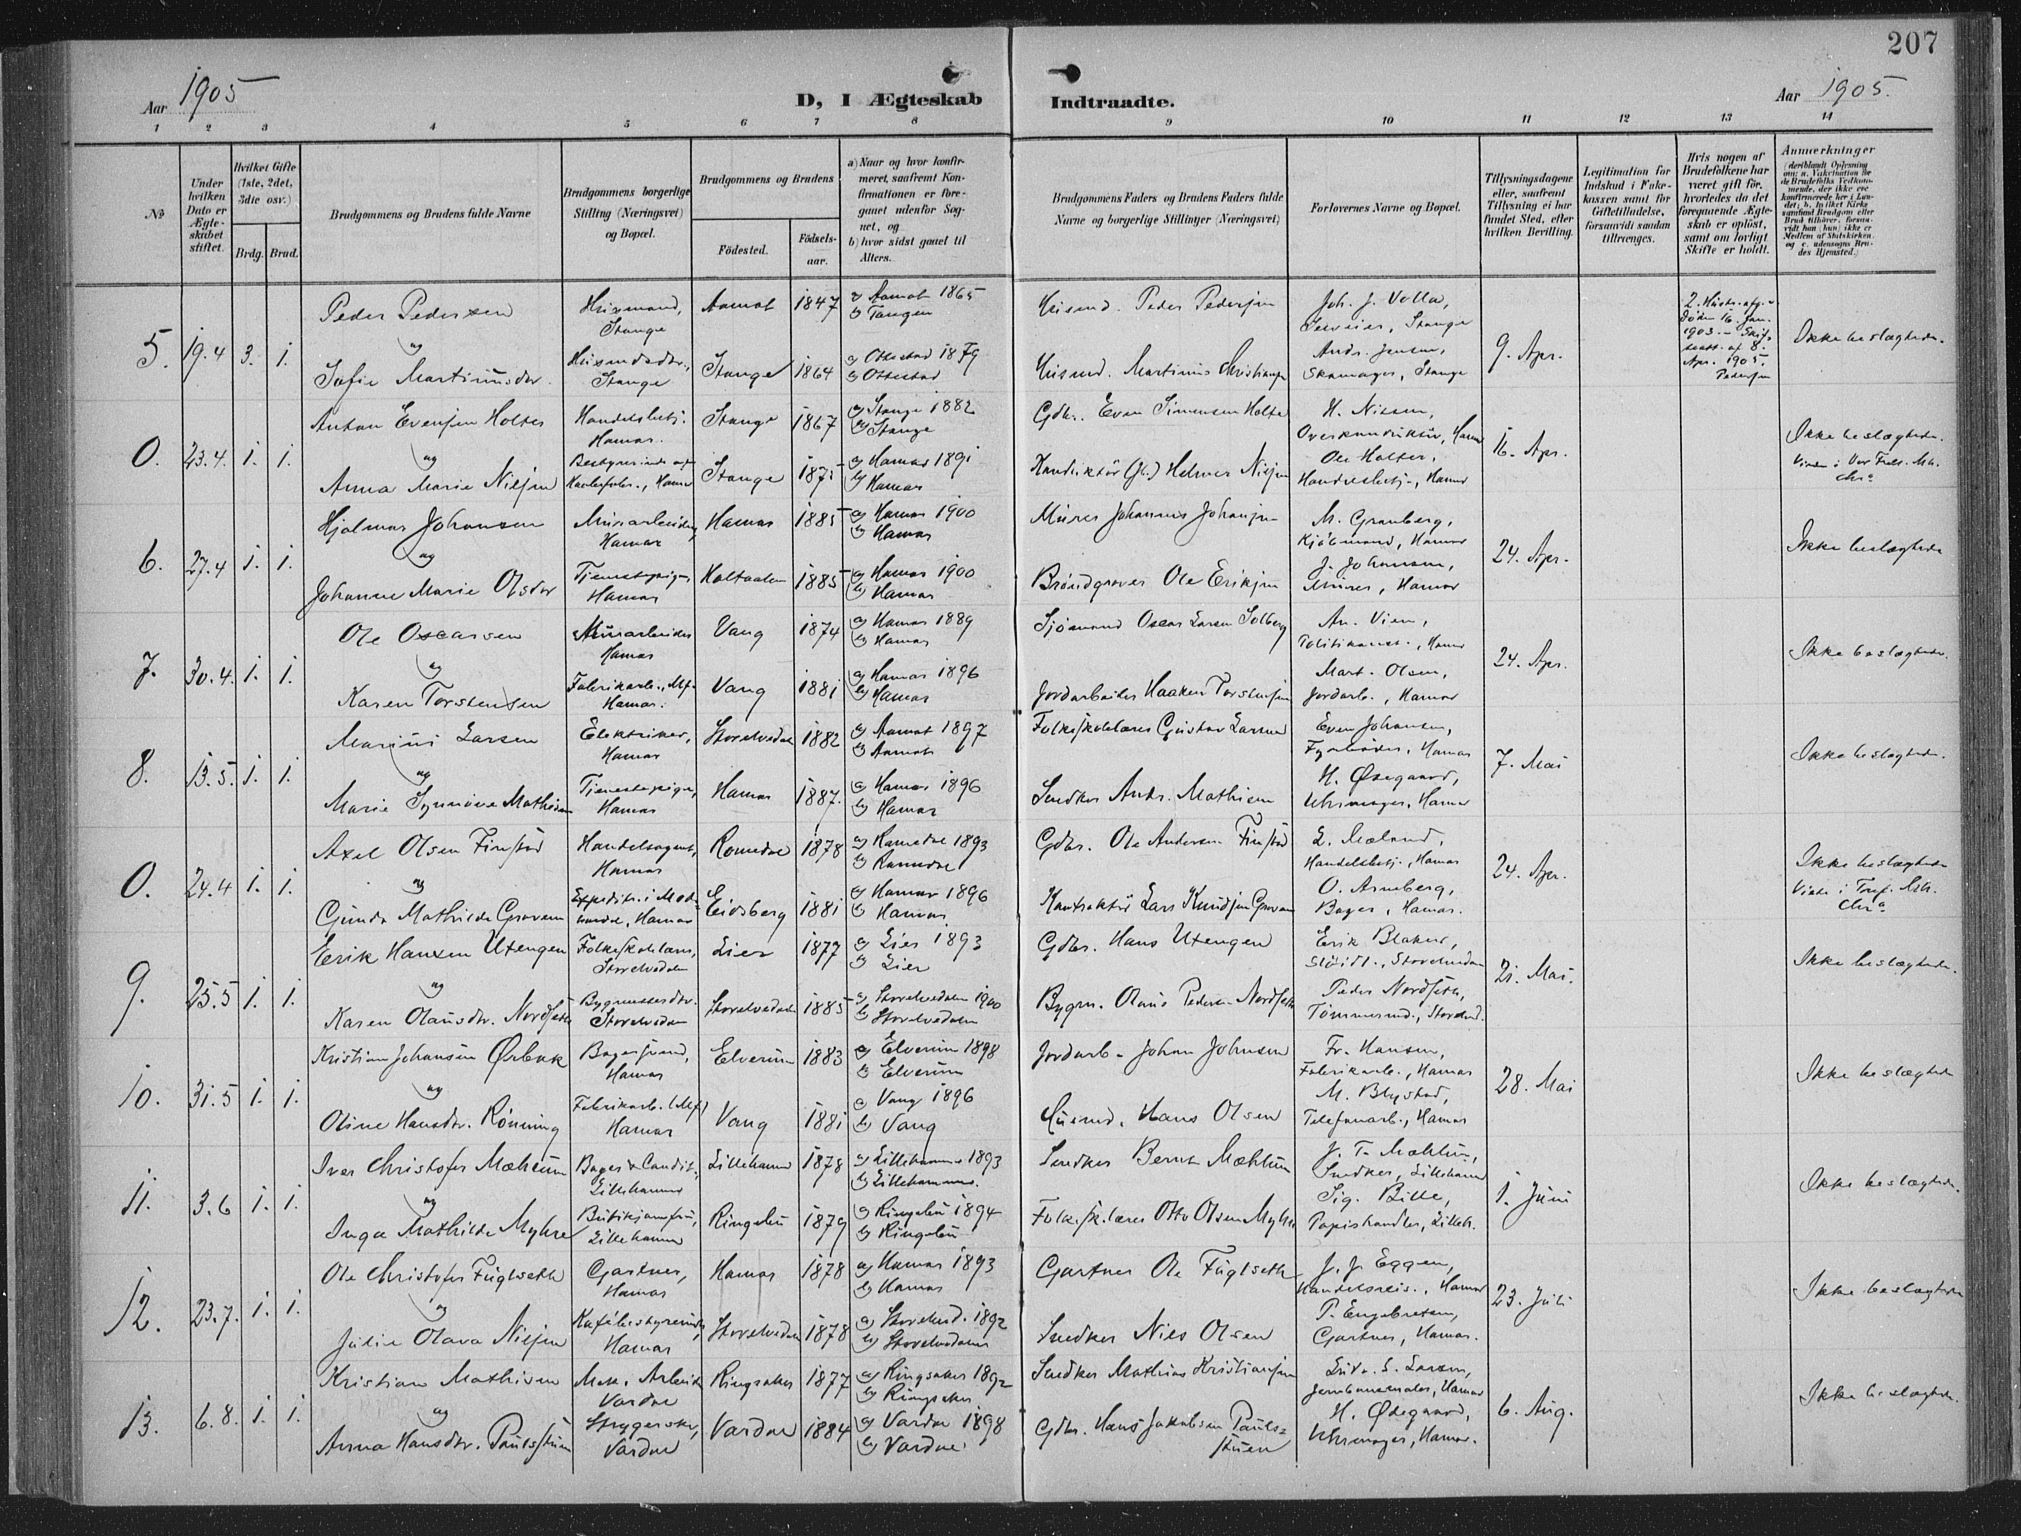 207
Aar 1905
D, I Ægteskab Indtraadte.
Aar 1905.
1 2 3 4 5 6 7 8 9 10 11 12 13 14
№
Under hvilken Dato er Ægteskabet stiftet.
Hvilket Gifte (1ste, 2det, 3die osv.)
Brdg. Brud.
Brudgommens og Brudens fulde Navne
Brudgommens borgerlige Stilling (Næringsvei) og Bopæl.
Brudgommens og Brudens
Fødested.
Fødsels-aar.
a) Naar og hvor konfirmeret, saafremt Konfirmationen er foregaaet udenfor Sognet, og
b) hvor sidst gaaet til Alters.
Brudgommens Faders og Brudens Faders fulde Navne og borgerlige Stillinger (Næringsvei)
Forlovernes Navne og Bopæl.
Tillysningsdagene eller, saafremt Tillysning ei har fundet Sted, efter hvilken Bevilling.
Legitimation for Indskud i Enkekassen samt for Giftetilladelse, forsaavidt saadan tiltrænges.
Hvis nogen af Brudefolkene har været gift før, hvorledes da det foregaaende Ægteskab er opløst, samt om lovligt Skifte er holdt.
Anmerkninger
5. 19.4 3. 1.
Peder Pedersen
Husmand, Stange
Aamot 1847
a) Aamot 1865
b) Tangen
Husmd. Peder Pedersen
Joh. J. Volla,
Stange
9. Apr.
2. Hustr. afg. v. Døden 16. Jan. 1903. - Skifteatt. af 8. Apr. 1905.
Ikke beslægtede.
og
Sofie Martinusdr.
Husmdsdtr., Stange
Stange 1864
a) Ottestad 1879
b) Ottestad
Husmd. Martinus Christiansen
Andr. Jensen,
Skomager, Stange
0. 23.4. 1. 1.
Anton Evensen Holter
Handelsbetj. Hamar.
Stange 1867
a) Stange 1882
b) Stange
Gdbr. Even Simensen Holter
H. Nissen,
Overkonduktør, Hamar
16. Apr.
Ikke beslægtede.
Viede i Vor Frels. Krk. Chr.a
og
Anna Marie Nilsen
Bestyrerinde af Hamar
Stange 1875
a) Hamar 1891
b) Hamar
Konduktør Helmer Nilsen
Ole Holter,
Handelsbetj., Hamar
6. 27.4 1. 1.
Hjalmar Johansen
Murarbeider, Hamar
Hamar 1885
a) Hamar 1900
b) Hamar
Murer Johannes Johansen
M. Granberg,
Kjøbmand, Hamar
24. Apr.
Ikke beslægtede
og
Johanne Marie Olsdtr
Tjenestepige, Hamar
Holtaalen 1885
a) Hamar 1900
b) Hamar
Brøndgraver Ole Eriksen
J. Johansen,
Murer, Hamar
7. 30.4. 1. 1.
Ole Oscarsen
Murarbeider Hamar
Vang 1874
a) Hamar 1889
b) Hamar
Sjømand Oscar Larsen Solberg
An. Vien,
Politikonst., Hamar
24. Apr.
Ikke beslægtede.
og
Karen Torstensen
Fabrikarb., Hamar.
Vang 1881
a) Hamar 1896
b) Hamar
Jordarbeider Haaken Torstensen
Mart. Olsen,
Jordarb., Hamar
8. 13.5. 1. 1.
Marius Larsen
Elektriker, Hamar
Storelvedal 1882
a) Aamot 1897
b) Aamot
Folkeskolelærer Gustav Larsen
Even Johansen,
Fyrbøder, Hamar
7. Mai
Ikke beslægtede.
og
Marie Synnøve Mathisen
Tjenestepige, Hamar
Hamar 1887.
a) Hamar 1896
b) Hamar
Snedker Andr. Mathisen
H. Ødegaard,
Uhrmager, Hamar
0. 24.4 1. 1.
Axel Olsen Finstad
Handelsagent, Hamar
Romedal 1878
a) Romedal 1893
b) Romedal
Gdbr. Ole Andersen Finstad
L. Mæland,
Handelsbetj., Hamar
24. Apr.
Ikke beslægtede
Viede i Tref. Krk. Chr.a
og
Gunda Mathilde Graven
Expeditr. i Hamar
Eidsberg 1881
a) Hamar 1896
b) Hamar
Kontraktør Lars Knudsen Graven
O. Arneberg,
Bager, Hamar.
9. 25.5 1. 1.
Erik Hansen Utengen
Folkeskolelærer, Storelvedalen
Lier 1877
a) Lier 1893
b) Lier
Gdbr. Hans Utengen
Erik Blaker,
Storelvedalen
21. Mai.
Ikke beslægtede.
og
Karen Olausdtr. Nordseth
Bygmesterdtr. Storelvedalen
Storelvedalen 1885
a) Storelvedalen 1900
b) Storelvedalen
Bygm. Olaus Pedersen Nordseth
Peder Nordseth,
Tømmermd., Storelvd.
10. 31.5 1. 1.
Kristian Johansen Ørbæk
Bagersvend, Hamar
Elverum 1883
a) Elverum 1898
b) Elverum
Jordarb. Johan Johnsen
Fr. Hansen,
Fabrikarb., Hamar
28. Mai
Ikke beslægtede
og
Oline Hansdtr. Rønning
Fabrikarb. Hamar
Vang 1881
a) Vang 1896
b) Vang
Husmd. Hans Olsen
M. Blystad,
Telefonarb., Hamar
11. 3.6 1. 1.
Iver Christofer Mæhlum
Bager & Condit., Lillehammer
Lillehammer 1878
a) Lillehammer 1893
b) Lillehammer.
Snedker Bernt Mæhlum
J. T. Mæhlum,
Snedker, Lillehammer
1. Juni
Ikke beslægtede.
og
Inga Mathilde Myhre
Lillehammer
Ringebu 1879
a) Ringebu 1894
b) Ringebu
Folkesk.lærer Otto Olsen Myhre
Sig. Bille,
Papirhandler, Lilleh.
12. 23.7. 1. 1.
Ole Christofer Fuglseth
Gartner, Hamar
Hamar 1878
a) Hamar 1893
b) Hamar
Gartner Ole Fuglseth
J. J. Eggen,
Handelsreis., Hamar
23. Juli
Ikke beslægtede
og
Julie Olava Nilsen
Kafébestyrerinde, Hamar
Storelvedalen 1878
a) Storelvd. 1892
b) Storelvedalen
Snedker Nils Olsen
P. Engebretsen,
Gartner, Hamar.
13. 6.8. 1. 1.
Kristian Mathisen
Mek. Arbeider Vardal
Ringsaker 1877
a) Ringsaker 1892
b) Ringsaker.
Snedker Mathias Kristiansen
Ludv. L. Larsen,
Hamar
6. Aug.
Ikke beslægtede.
og
Anna Hansdtr. Paulsstuen
Strygerske, Vardal
Vardal 1884
a) Vardal 1898
b) Vardal
Gdbr. Hans Jakobsen Paulsstuen
H. Ødegaard,
Uhrmager, Hamar.